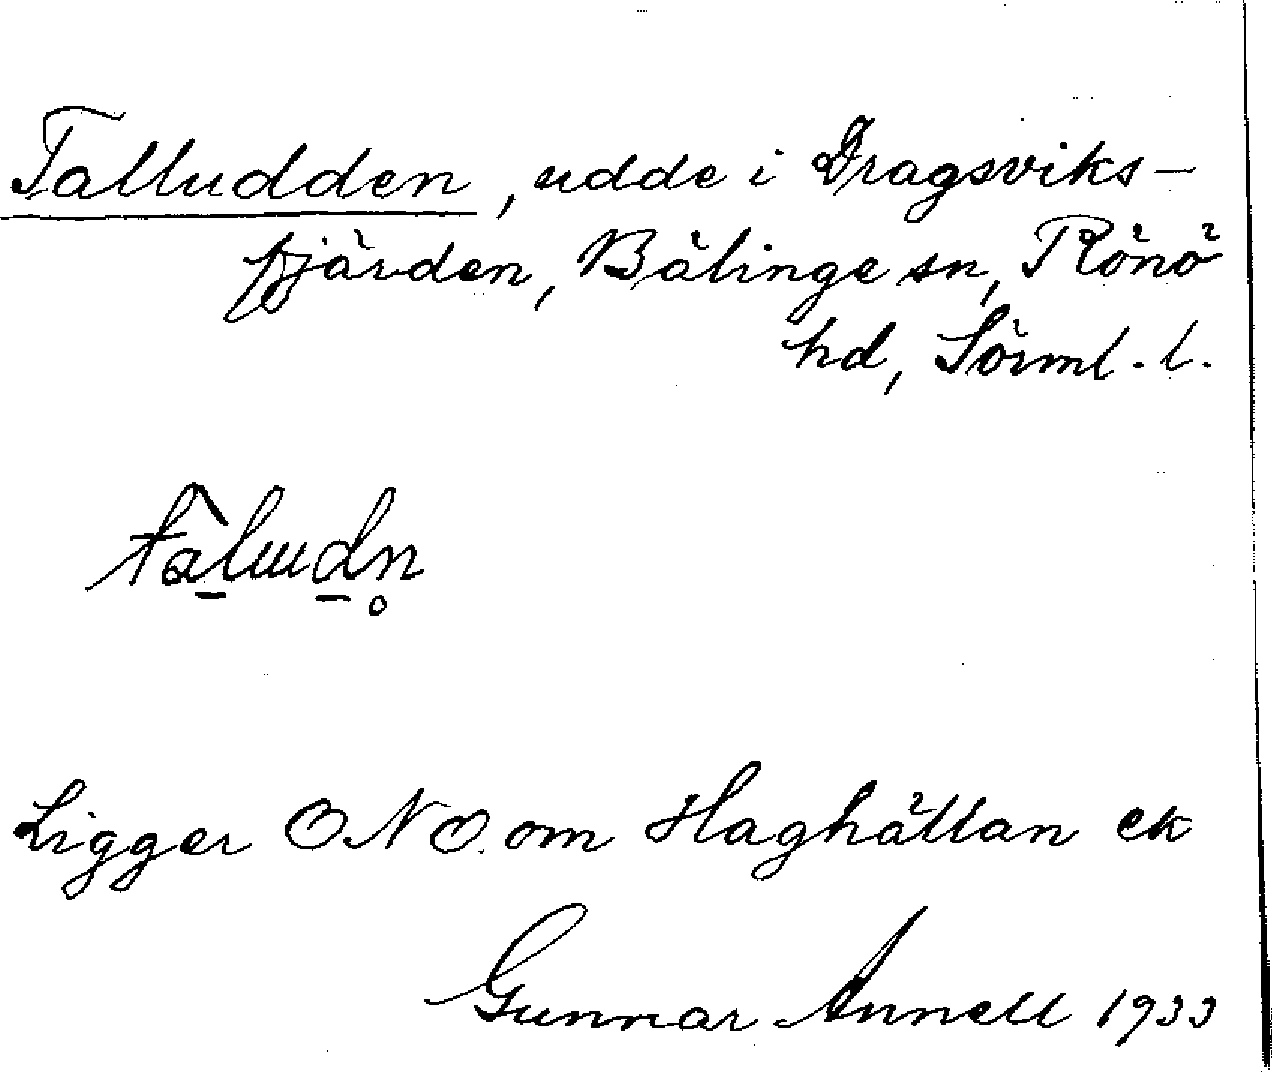 Talludden, udde i Dragsviks-
fjärden, Bälinge sn, Rönö
hd, Sörml. l.
Ligger ONO om Haghällan ek
Gunnar Annell 1933